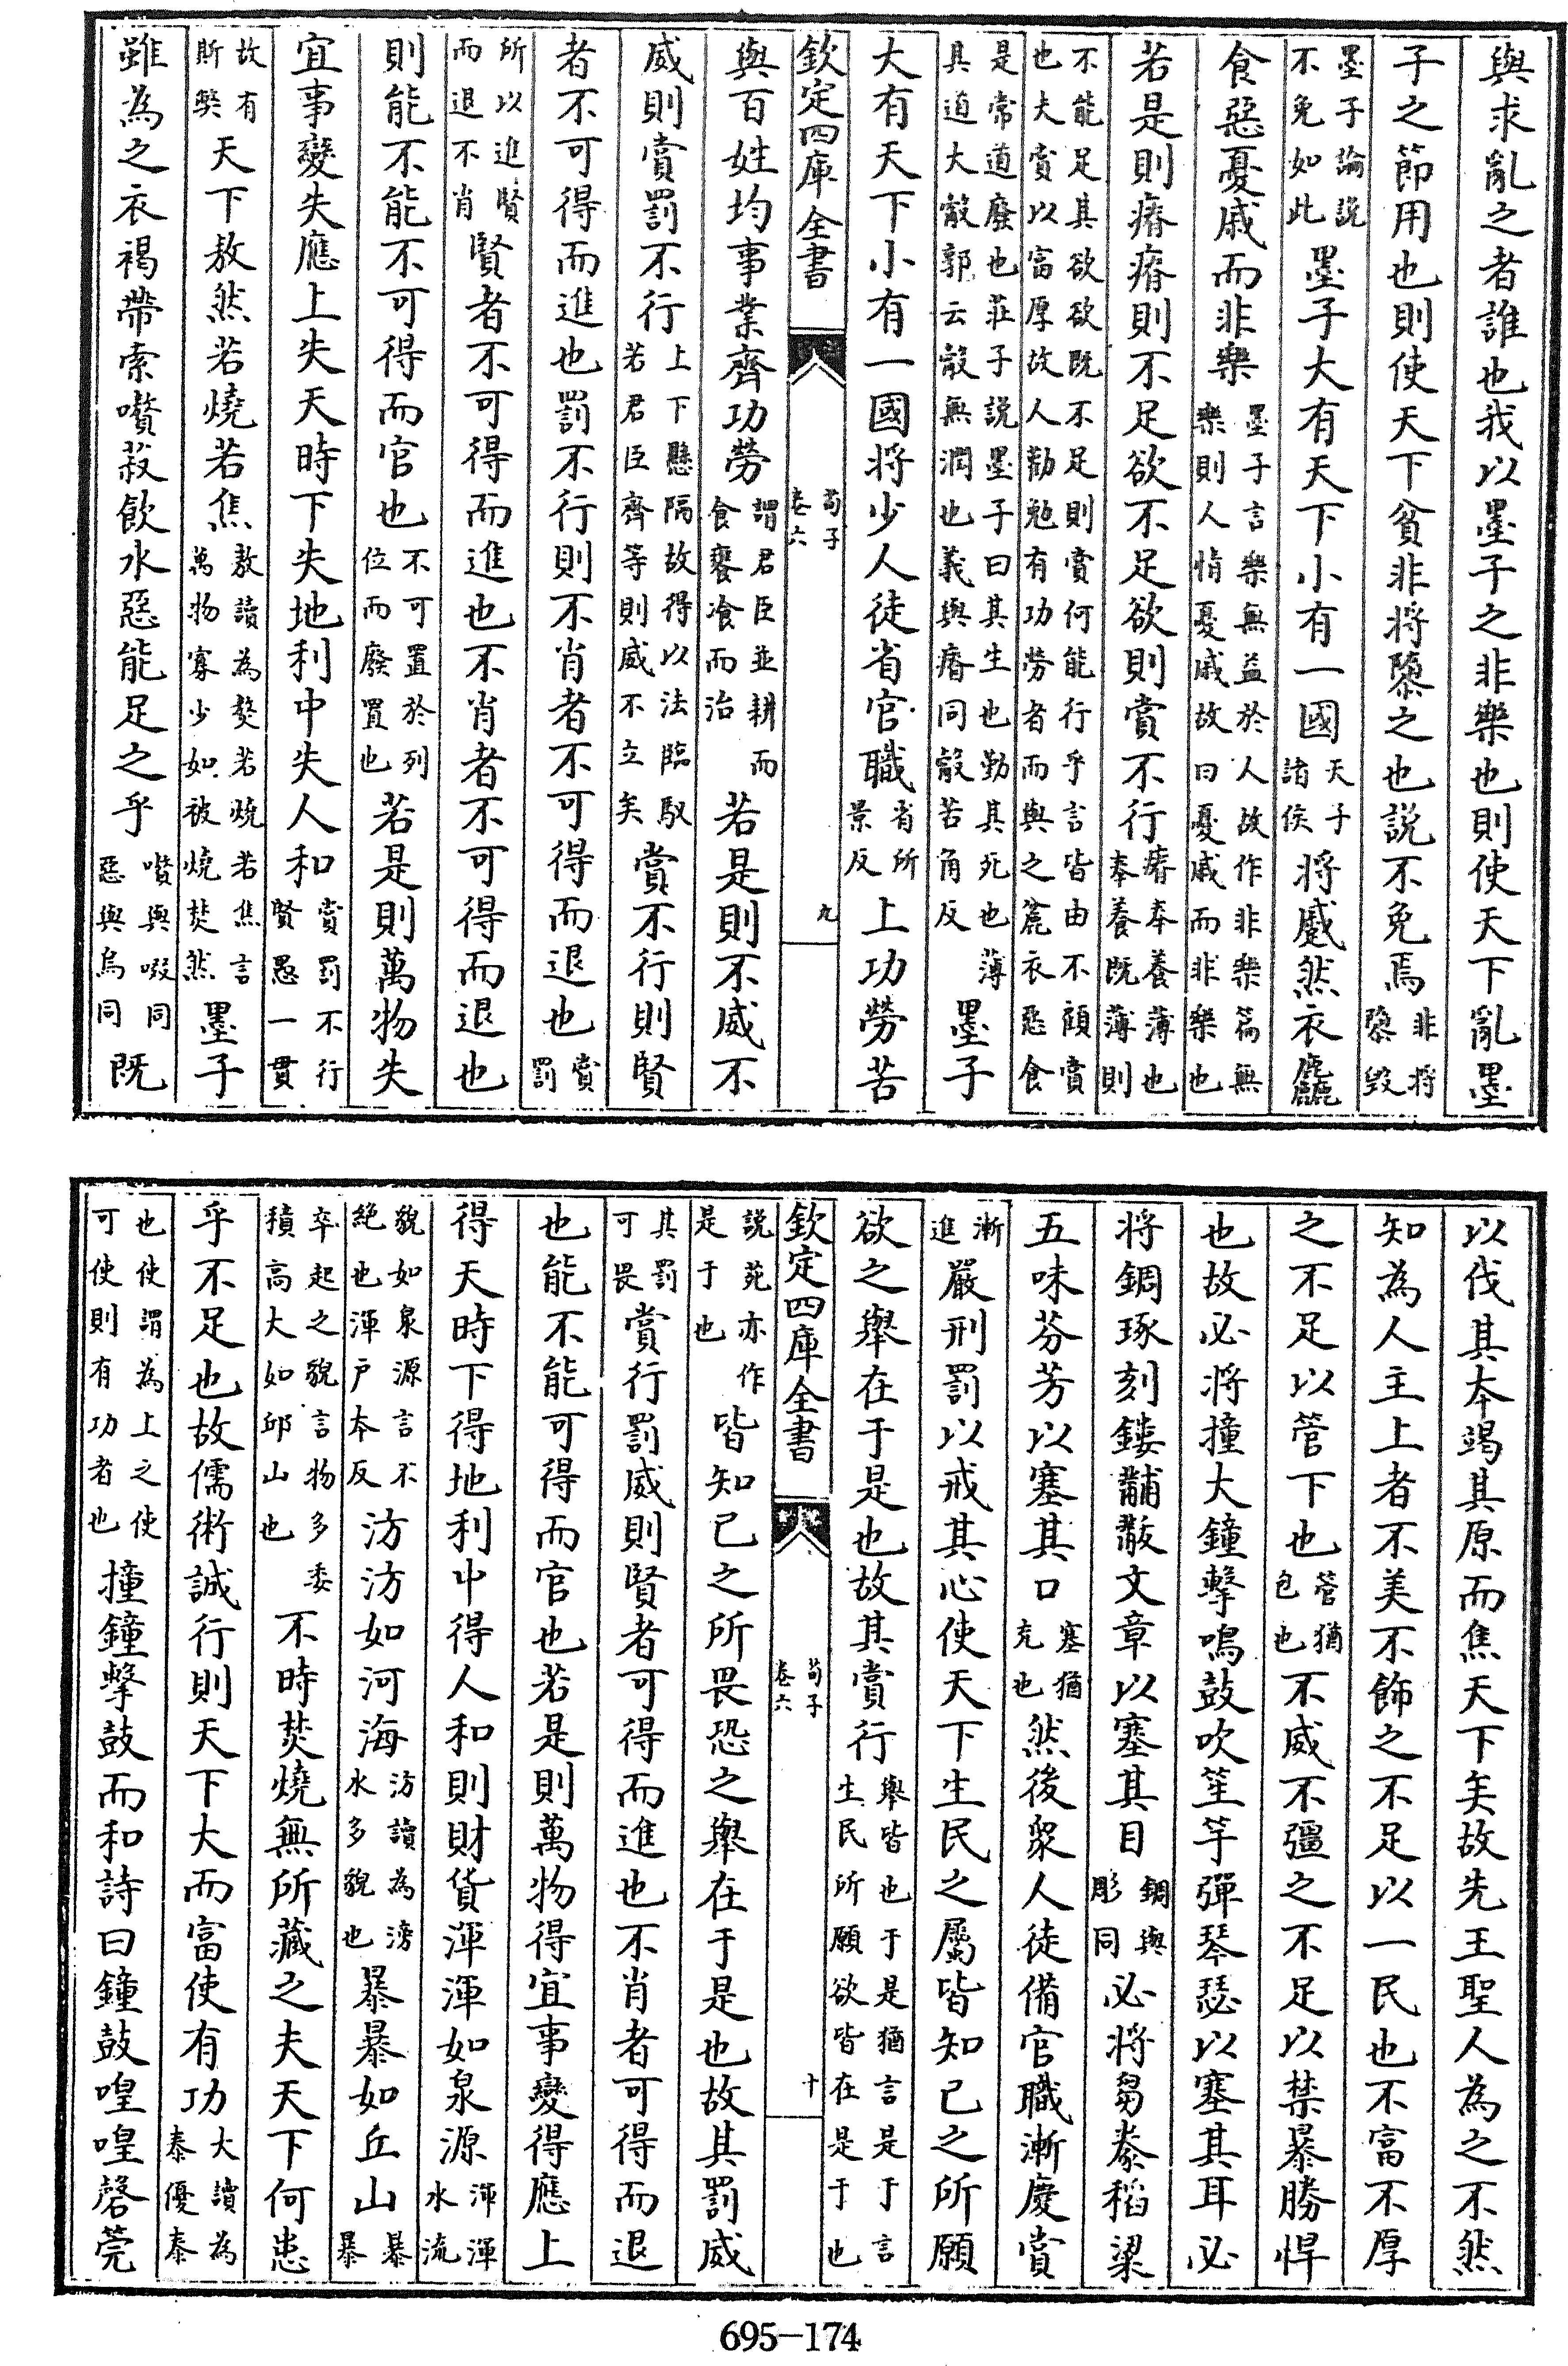 與求亂之者誰也我以墨子之非樂也則使天下亂墨
子之節用也則使天下貧非將隳之也説不免焉非將隳毀
墨子論説不免如此墨子大有天下小有一國天子諸侯將蹙然衣麤
食惡憂戚而非樂墨子言樂無益於人故作非樂篇無樂則人情憂戚故曰憂戚而非樂也
若是則瘠瘠則不足欲不足欲則賞不行瘠奉養薄也奉養既薄則
不能足其欲欲既不足則賞何能行乎言皆由不顧賞也夫賞以富厚故人勸勉有功勞者而與之麄衣惡食
是常道廢也莊子説墨子曰其生也勤其死也薄其道大觳郭云觳無潤也義與瘠同觳苦角反墨子
大有天下小有一國將少人徒省官職省所景反上功勞苦
欽定四庫全書
荀子卷六
九
與百姓均事業齊功勞謂君臣並耕而食饔飧而治若是則不威不
威則賞罰不行上下懸隔故得以法臨馭若君臣齊等則威不立矣賞不行則賢
者不可得而進也罰不行則不肖者不可得而退也賞罰
所以進賢而退不肖賢者不可得而進也不肖者不可得而退也
則能不能不可得而官也不可置於列位而廢置也若是則萬物失
宜事變失應上失天時下失地利中失人和賞罰不行賢愚一貫
故有斯弊天下敖然若燒若焦敖讀為熬若燒若焦言萬物寡少如被燒焚然墨子
雖為之衣褐帶索嚽菽飲水惡能足之乎嚽與啜同惡與烏同既
以伐其本竭其原而焦天下矣故先王聖人為之不然
知為人主上者不美不飾之不足以一民也不富不厚
之不足以管下也管猶包也不威不彊之不足以禁暴勝悍
也故必將撞大鐘擊鳴鼓吹笙竽彈琴瑟以塞其耳必
將錭琢刻鏤黼黻文章以塞其目錭與彫同必將芻豢稻粱
五味芬芳以塞其口塞猶充也然後衆人徒備官職漸慶賞
漸進嚴刑罰以戒其心使天下生民之屬皆知已之所願
欲之舉在于是也故其賞行舉皆也于是猶言是于言生民所願欲皆在是于也
欽定四庫全書
荀子卷六
十
説苑亦作是于也皆知已之所畏恐之舉在于是也故其罰威
其罰可畏賞行罰威則賢者可得而進也不肖者可得而退
也能不能可得而官也若是則萬物得宜事變得應上
得天時下得地利中得人和則財貨渾渾如泉源渾渾水流
貌如泉源言不絶也渾戸本反汸汸如河海汸讀為滂水多貌也暴暴如丘山暴暴
卒起之貌言物多委積高大如邱山也不時焚燒無所藏之夫天下何患
乎不足也故儒術誠行則天下大而富使有功大讀為泰優泰
也使謂為上之使可使則有功者也撞鐘擊鼓而和詩曰鐘鼓喤喤磬筦
695-174